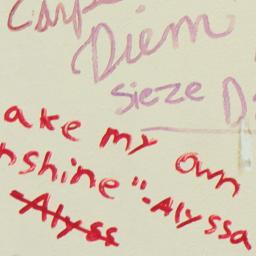 Carpe
Diem
sieze D
ake my own
nshine" -Alyssa
Alyss